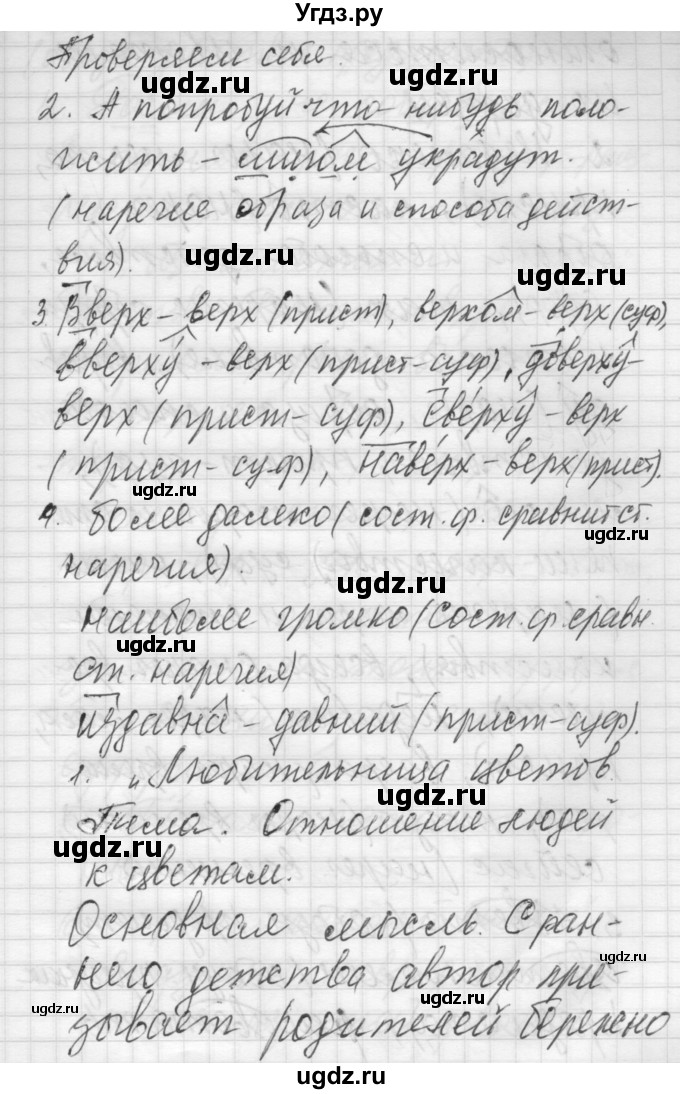 Угдз.ру
Проверяем себя.
ugdz.ru
2. А попробуй что-нибудь поло-
ugdz.ru
жить – мигом украдут.
(наречие образа и способа дейст-
вия).
ugdz.ru
3. Вверх – верх (прист), верхом – верх (суф),
ugdz.ru
вверху – верх (прист-суф), доверху –
верх (прист-суф), сверху – верх
ugdz.ru
(прист-суф), наверх – верх (прист).
ugdz.ru
4. более далеко (сост. ф. сравнит ст.
ugdz.ru
наречия).
ugdz.ru
наиболее громко (сост. ф. сравн.
ugdz.ru
ст. наречия)
издавна – давний (прист-суф).
1. „Любительница цветов.
ugdz.ru
Тема. Отношение людей
ugdz.ru
к цветам.
Основная мысль. С ран-
ugdz.ru
него детства автор при-
ugdz.ru
ugdz.ru
зывает родителей бережно
ugdz.ru